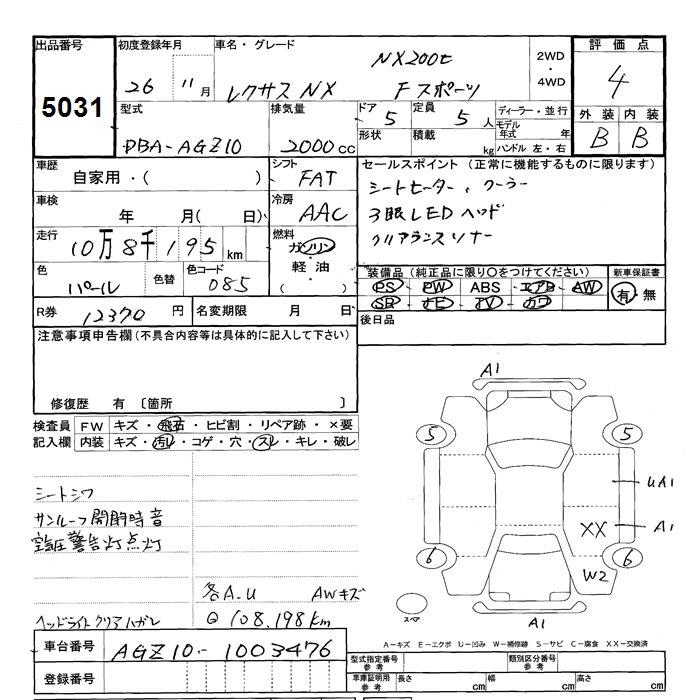 出品番号 初度登録年月 車名・グレード NX200t 2WD・4WD 評価点
5031 26 11月 レクサス NX Fスポーツ 4
型式 排気量 ドア 5 定員 5人 ディーラー・並行 外装 内装
DBA-AGZ10 2000cc 形状 積載 kg モデル年式 年 ハンドル 左・右 B B
車歴 自家用・( ) シフト FAT セールスポイント (正常に機能するものに限ります)
車検 年 月( 日) 冷房 AAC シートヒーター、クーラー
走行 10万8千195km 燃料 ガソリン・軽油・( ) 3眼LEDヘッド
色 パール 色替 色コード 085 クリアランスソナー
装備品 (純正品に限り○をつけてください) 新車保証書
PS PW ABS エアB AW 有・無
SR ナビ TV カワ
R券 12370円 名変期限 月 日 後日品
注意事項申告欄(不具合内容等は具体的に記入して下さい)
修復歴 有 〔箇所 〕
検査員記入欄 FW キズ・飛石・ヒビ割・リペア跡・×要
内装 キズ・汚レ・コゲ・穴・スレ・キレ・破レ
シートシワ
サンルーフ開閉時音
空気圧警告灯点灯
各A.U AWキズ
ヘッドライトクリアハガレ ◎108,198km
車台番号 AGZ10-1003476
登録番号
A1
5 5
UA1
XX A1
6 6
W2
スペア A1
A-キズ E-エクボ U-凹み W-補修跡 S-サビ C-腐食 XX-交換済
型式指定番号 参考 類別区分番号 参考
車庫証明用 参考 長さ cm 幅 cm 高さ cm